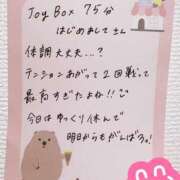 Joy Box 75分
はじめまして さん
体調大丈夫...?
テンションあがって2回戦って
最高すぎたよね!!
今日はゆっくり休んで
明日からもがんばろっ!